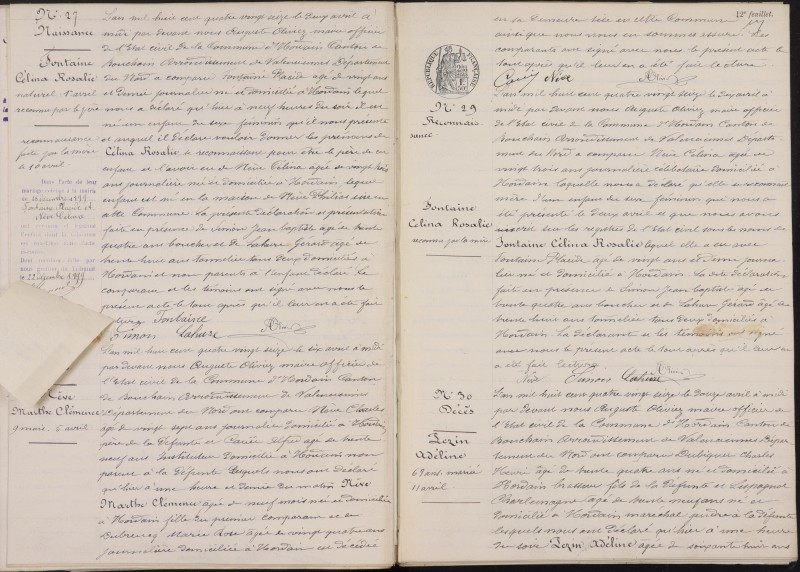 N° 27
Naissance
Fontaine
Célina Rosalie
naturel 1er avril
reconnue par le père
reconnaissance
faite par la mère
le 10 avril
Fontaine Placide et
Nève Célina
L'an mil huit cent quatre vingt seize le deux avril à
midi par devant nous Auguste Olivez maire officier
de l'Etat civil de la Commune d'Hordain Canton de
Bouchain Arrondissement de Valenciennes Département
du Nord a comparu Fontaine Placide âgé de vingt ans
et demi journalier né et domicilié à Hordain lequel
nous a déclaré qu'hier à neuf heures du soir il est
né un enfant du sexe féminin qu'il nous présente
et auquel il déclare vouloir donner les prénoms de
Célina Rosalie, a reconnaissant pour être le père de cet
enfant et l'avoir eu de Nève Célina âgée de vingt trois
ans journalière née et domiciliée à Hordain, lequel
enfant est né en la maison de Nève sise en
cette Commune. La présente déclaration et présentation
faite en présence de Simon Jean baptiste âgé de trente
quatre ans boucher et de Lahure Gérard âgé de
trente huit ans tonnelier tous deux domiciliés à
Hordain et non parents à l'enfant déclaré. Le
comparant et les témoins ont signé avec nous le
présent acte le tout après qu'il leur en a été fait
lecture Fontaine
Simon Lahure
Nève
Marthe Clémence
9 mois. 5 avril
L'an mil huit cent quatre vingt seize le six avril à midi
par devant nous Auguste Olivez maire officier de
l'Etat civil de la Commune d'Hordain Canton
de Bouchain Arrondissement de Valenciennes
Département du Nord ont comparu Nève Charles
âgé de vingt sept ans journalier domicilié à Hordain
père de la défunte et Carré âgé de trente
neuf ans Instituteur domicilié à Hordain non
parent à la défunte lesquels nous ont déclaré
qu'hier à une heure et demie du matin Nève
Marthe Clémence âgée de neuf mois née et domiciliée
à Hordain fille du premier comparant et de
Marie Rose âgée de vingt quatre ans
journalière domiciliée à Hordain est décédée
12e feuillet.
en sa demeure sise en cette Commune
ainsi que nous nous en sommes assuré. Les
comparants ont signé avec nous le présent acte le
tout après qu'il leur en a été fait lecture
Nève
REPUBLIQUE FRANÇAISE
N° 29
Reconnais-
sance
Fontaine
Célina Rosalie
reconnue par la mère
L'an mil huit cent quatre vingt seize le dix avril à
midi par devant nous Auguste Olivez maire officier
de l'Etat civil de la Commune d'Hordain Canton de
Bouchain Arrondissement de Valenciennes Départe-
ment du Nord a comparu Nève Célina âgée de
vingt trois ans journalière célibataire domiciliée à
Hordain laquelle nous a déclaré qu'elle se reconnait
mère d'un enfant du sexe féminin que nous a
été présenté le deux avril et que nous avons
inscrit sur les registres de l'Etat civil sous les noms de
Fontaine Célina Rosalie lequel elle a eu avec
Fontaine Placide âgé de vingt ans et demi journa
lier né et domicilié à Hordain. La dite déclaration
fait en présence de Simon Jean baptiste âgé de
trente quatre ans boucher et de Lahure Gérard âgé de
trente huit ans tonnelier tous deux domiciliés à
Hordain. La déclarant et les témoins ont signé
avec nous le présent acte le tout après qu'il leur en
a été fait lecture.
Nève Simon Lahure
N° 30
Décès
Lezin
Adéline
68 ans. mariée
11 avril
L'an mil huit cent quatre vingt seize le douze avril à midi
par devant nous Auguste Olivez maire officier de
l'Etat civil de la Commune d'Hordain Canton de
Bouchain Arrondissement de Valenciennes Dépar-
tement du Nord ont comparu Dubiquer Charles
Henri âgé de trente quatre ans né et domicilié à
Hordain brasseur fils de la défunte et
Charlemagne âgé de trente neuf ans né et
domicilié à Hordain maréchal gendre à la défunte
lesquels nous ont déclaré qu'hier à une heure
du soir Lezin Adéline âgée de soixante huit ans